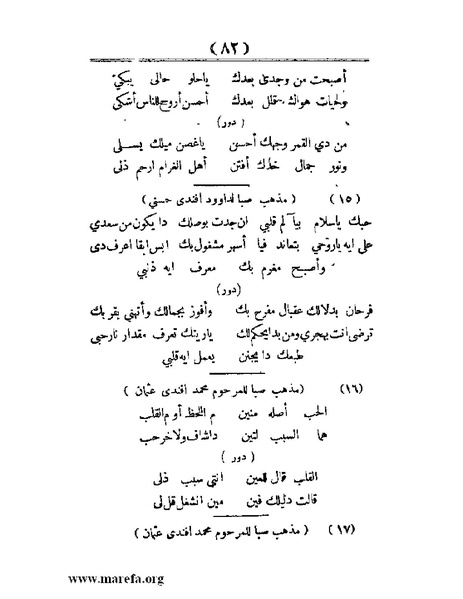 ( ٨٢ )
أصبحت من وجدى بعدك ياحلو حالى يبكي
ولحيات هواك ستقلل بعدك أحسن أروح للناس أشكى
( دور )
من دي القمر وجهك أحسن ياغصن ميلك يسلى
ونور جمال خدك أفتن أهل الغرام ارحم ذلى
( ١٥ ) ( مذهب صبا لداوود افندى حسني )
حبك ياسلام بيآلم قلبي ان جدت بوصلك دا يكون من سعدي
على ايه ياروحي بتعاند فيا أسهر مشغول بك ابس ابقا اعرف دى
وأصبح مغرم بك معرف ايه ذنبي
(دور)
فرحان بدلالك عقبال مفرح بك وأفوز بجمالك وأتهني بقربك
ترضى انت بهجري ومن بدا يحكم لك ياريتك تعرف مقدار نارحبي
طبعك دا يجنن يعمل ايه قلبي
(١٦) ( مذهب صبا للمرحوم محمد افندى عثمان )
الحب أصله منين م اللحظ أو م القلب
هما السبب لتين داشاف ولاخر حب
( دور )
القلب قال للعين انتى سبب ذلى
قالت دليلك فين مين انشغل قل لى
(١٧) ( مذهب صبا للمرحوم محمد افندى عثمان )
www.marefa.org